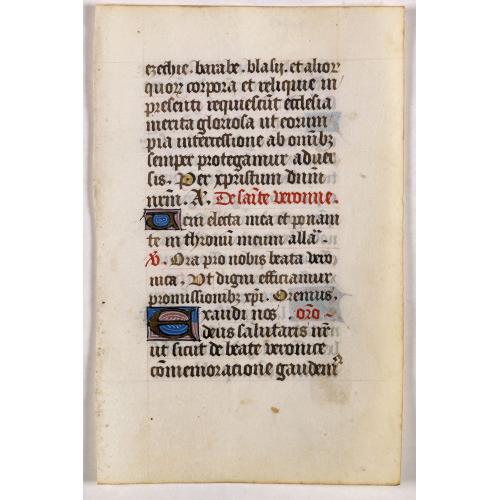 ezechie . barabe . blasij . et alior
quorꝫ corpora et reliquie in
presenti requiescūt ecclesia
merita gloriosa ut eorum
pia intercessione ab omībꝫ
semper protegamur aduer
sis . Per xpristum dnm̄
nrm̄ . A . De saīte veronne .
Veni electa mea et ponam
te in thronū meum alla
V . Ora pro nobis beata vero
nica . Ut digni efficiamur
promissionibꝫ xpi . Oremus .
Exaudi nos oro
deus salutaris nr̄
ut sicut de beate veronice
cōmemoracione gaudem